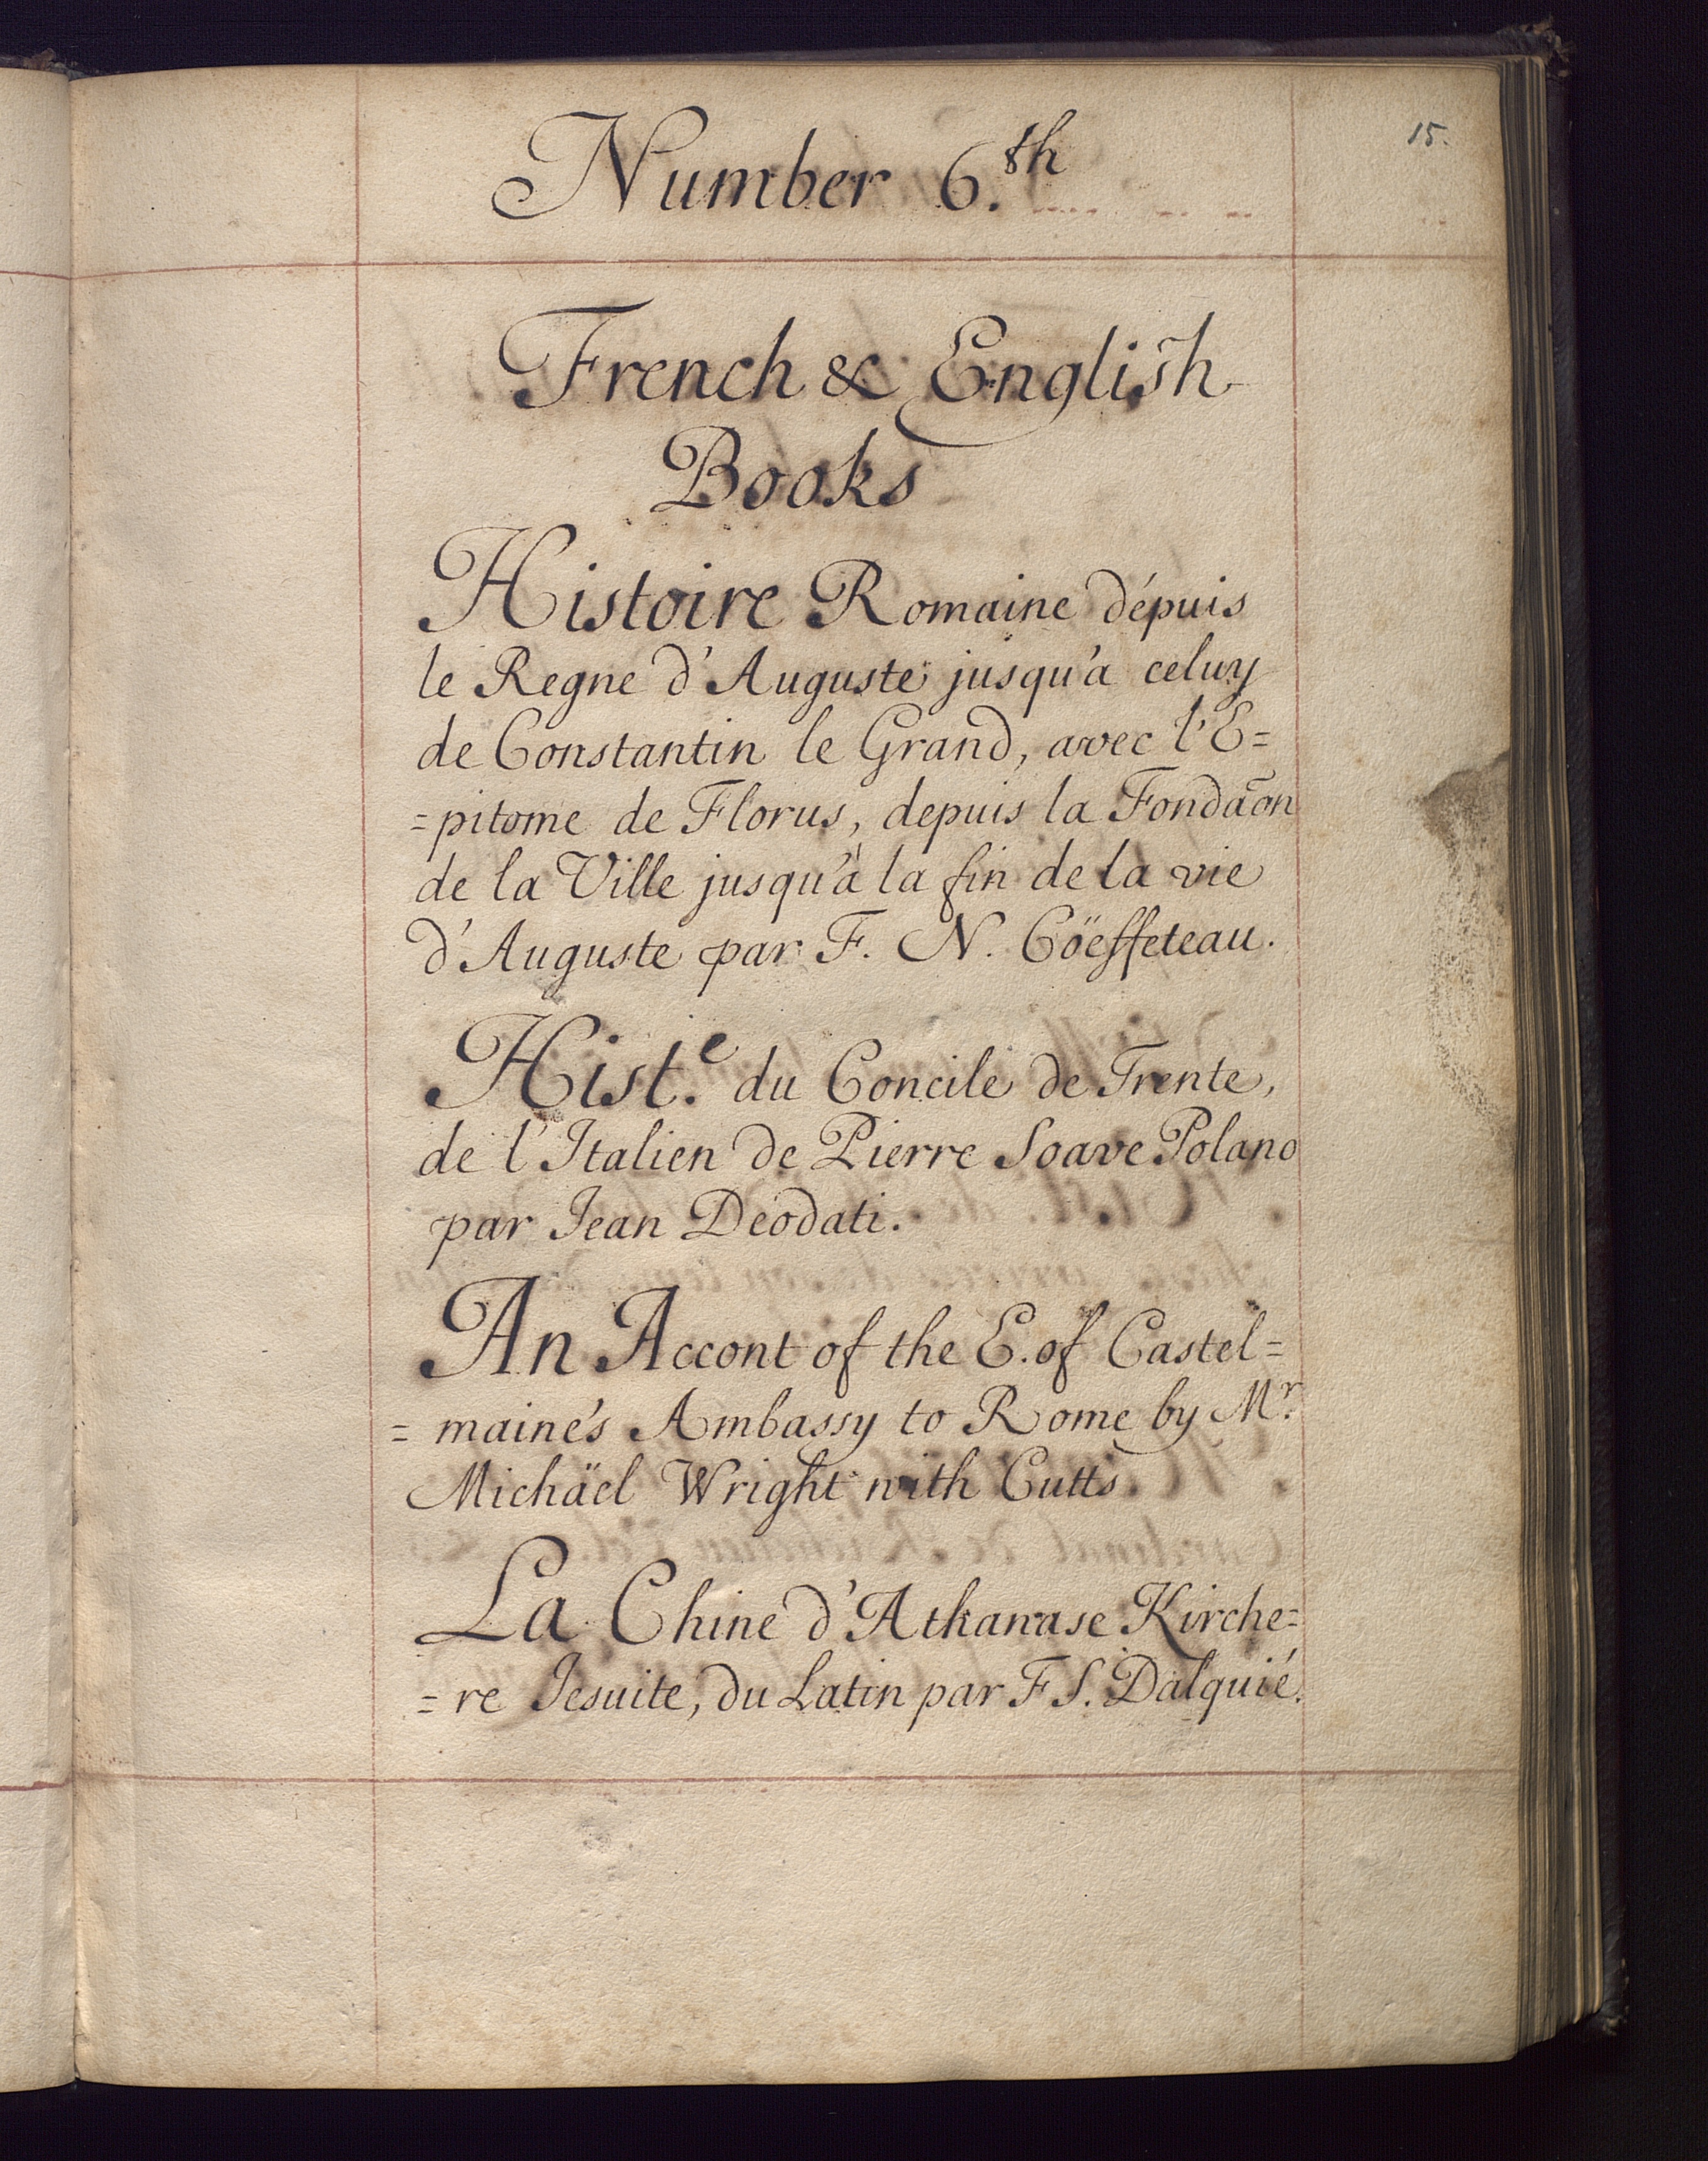 15.
Number 6.th
French & English
Books
Histoire Romaine dépuis
le Regne d'Auguste jusqu'a celuy
de Constantin le Grand, avec l'E=
=pitome de Florus, depuis la Fondaōn
de la Ville jusqu'à la fin de la vie
d'Auguste par F. N. Cöeffeteau.
Hist.e du Concile de Trente,
de l'Italien de Pierre Soave Polano
par Jean Deodati.
An Accont of the E. of Castel=
=maine's Ambassy to Rome by Mr.
Michäel Wright with Cutts.
La Chine d'Athanase Kirche=
=re Jesuite, du Latin par F S. Dalquié.